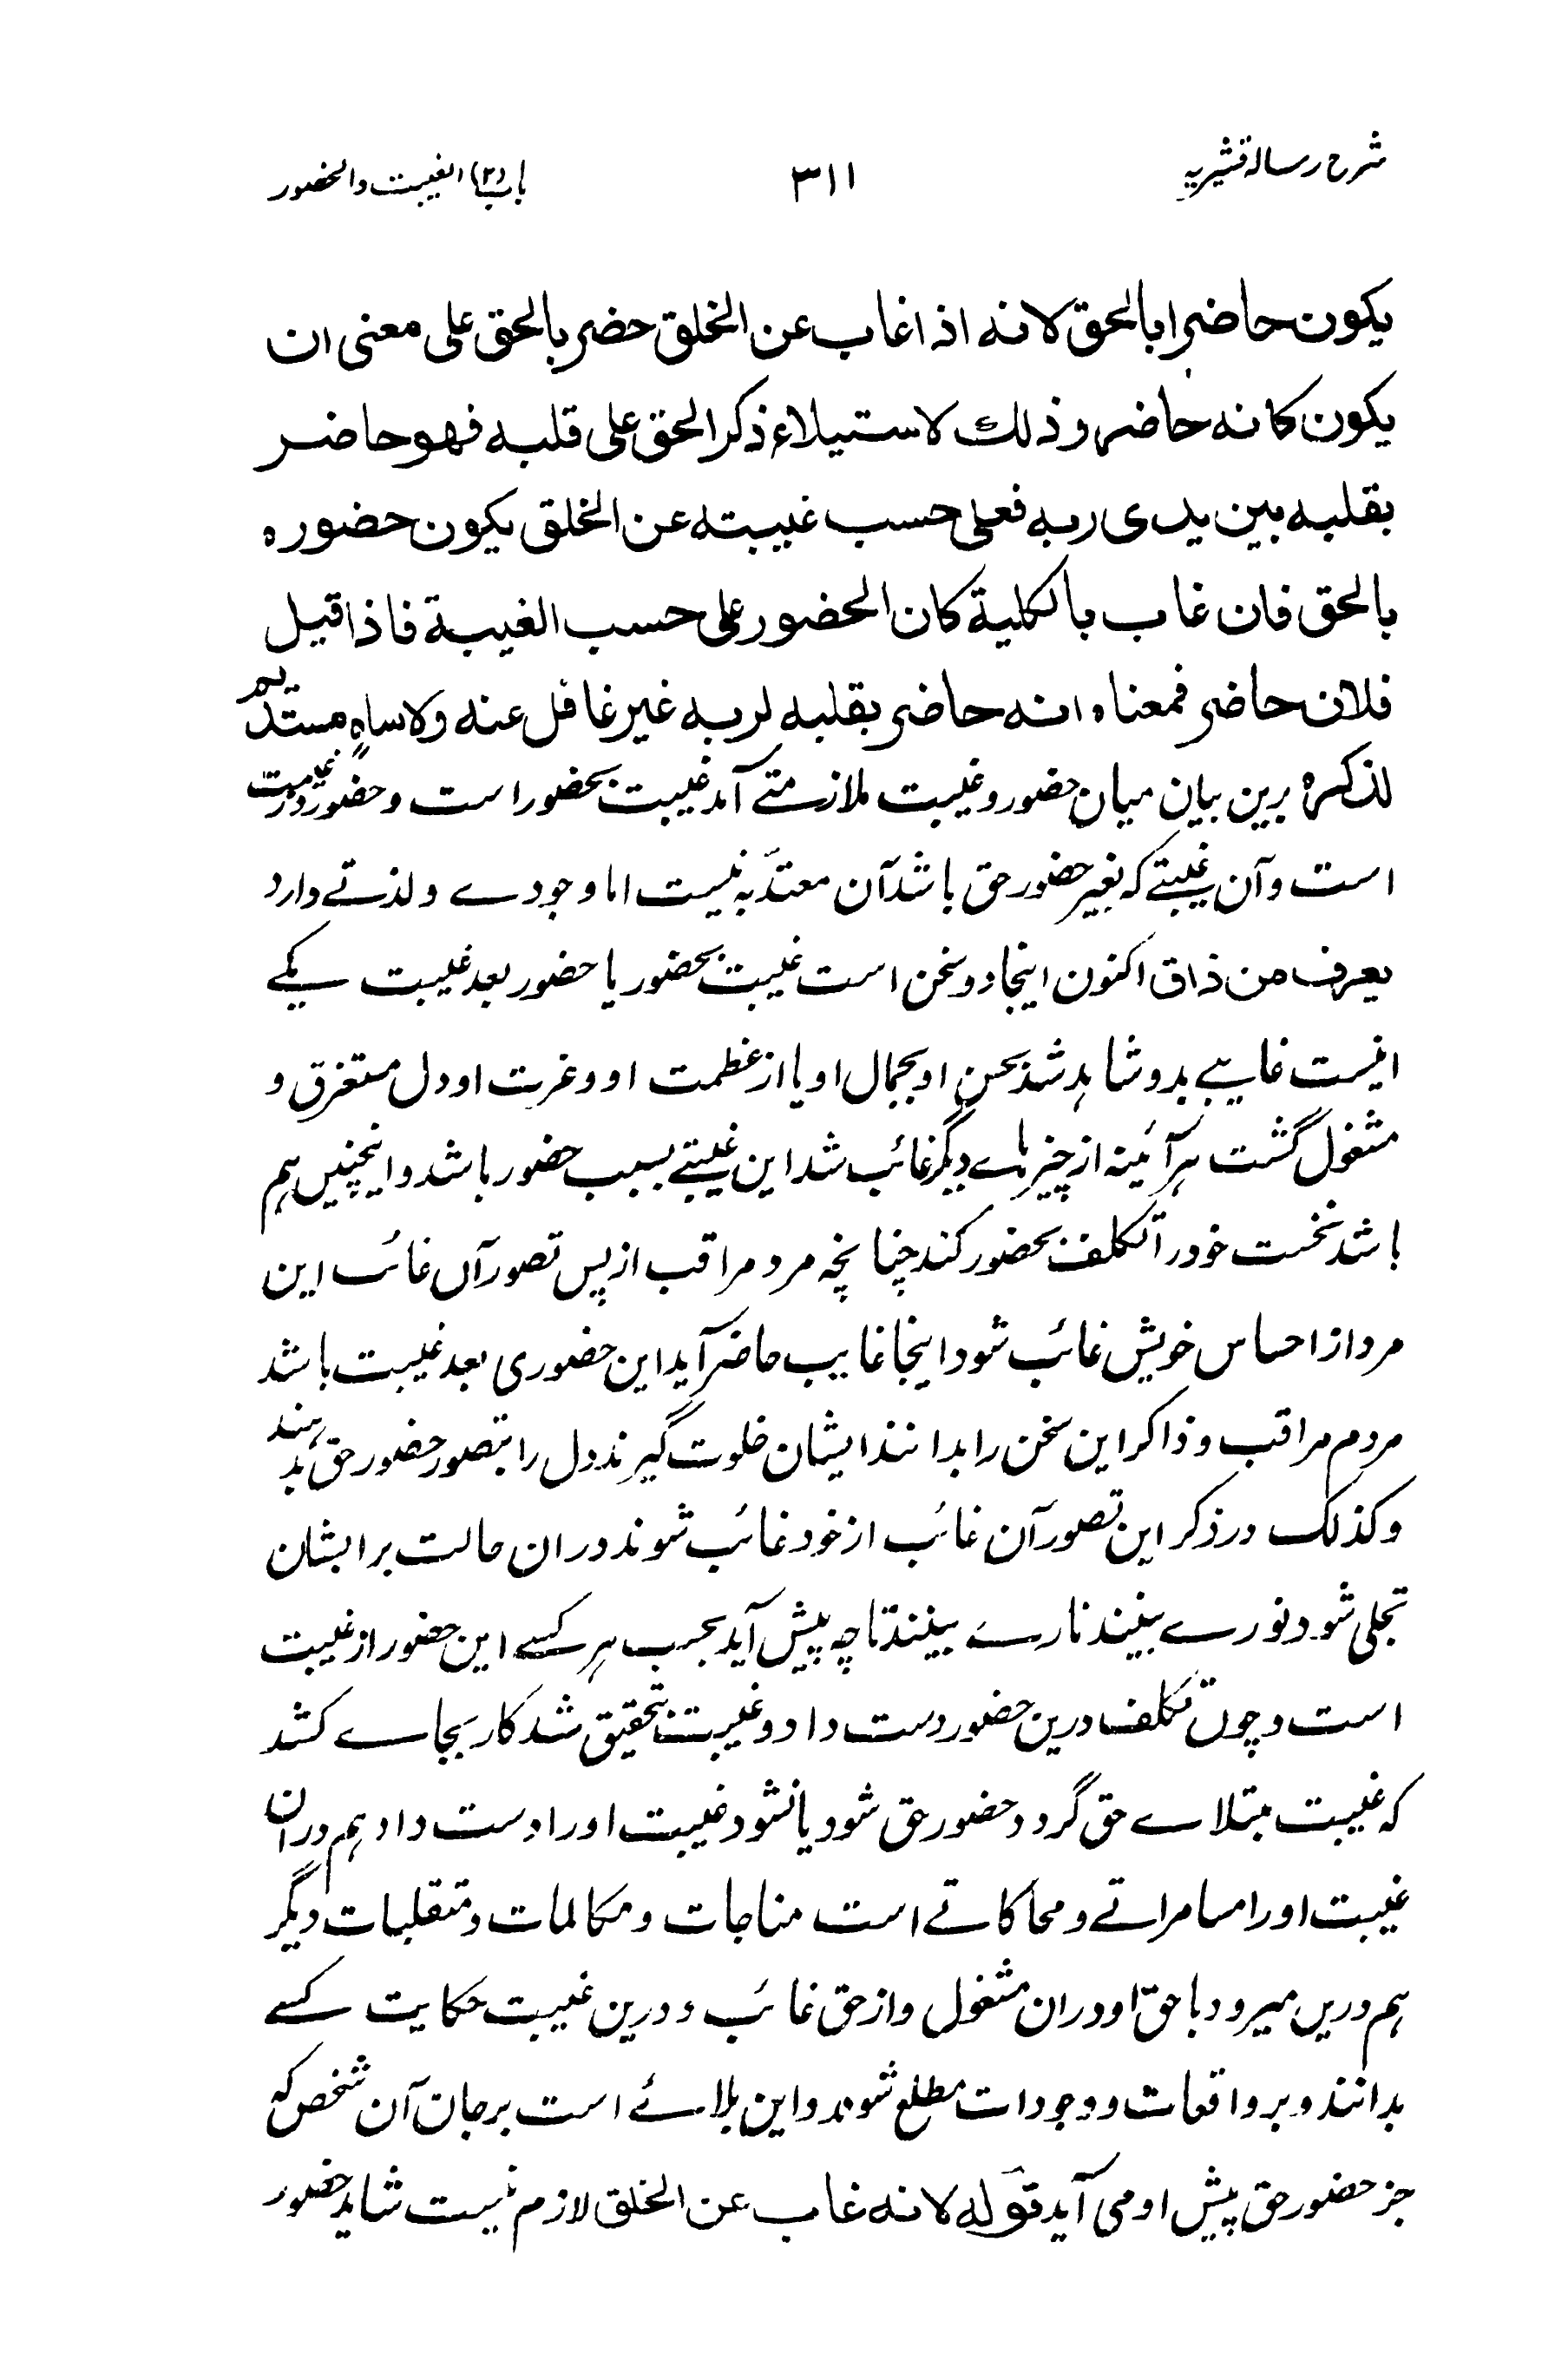 شرح رسالہ قشیریہ
۳۱۱
باب (۲) الغیبت والحضور
یکون حاضرا بالحق لانه اذا غاب عن الخلق حضر بالحق علی معنی ان
یکون کانه حاضر وذلك لاستیلاء ذکر الحق علی قلبه فهو حاضر
بقلبه بین یدی ربه فعلی حسب غیبته عن الخلق یکون حضوره
بالحق فان غاب بالکلیة کان الحضور علی حسب الغیبة فاذا قیل
فلان حاضر فمعناه انه حاضر بقلبه لربه غیر غافل عنه ولا ساهٍ مستدیم
لذکره برین بیان میان حضور وغیبت ملازمتے آمد غیبت بحضور است وحضور در غیبت
است وآن غیبتے که بغیر حضور حق باشد آن معتدّ به نیست اما وجودے ولذتے دارد
یعرف من ذاق اکنون اینجا دو سخن است غیبت بحضور یا حضور بعد غیبت یکے
اینست غایبے بدو شاہد شد بحسن او بجمال او یا از عظمت او وعزت او دل مستغرق و
مشغول گشت ہر آئینہ از چیزہاے دیگر غائب شد این غیبتے بسبب حضور باشد واینچنیں ہم
باشد نخست خود را تکلف بحضور کند چنانچہ مرد مراقب از پس تصور آں غائب این
مرد از احساس خویش غائب شود اینجا غایب حاضر آید این حضوری بعد غیبت باشد
مردم مراقب وذاکر این سخن را بدانند ایشان خلوت گیرند دل را بتصور حضور حق بدہند
وکذلک در ذکر این تصور آن غائب از خود غائب شوند دران حالت بر ایشان
تجلی شود نورے بینند نارے بینند تا چہ پیش آید بحسب ہر کسے این حضور از غیبت
است وچوں تکلف درین حضور دست داد وغیبت بتحقیق شد کار بجاے کشد
کہ غیبت مبتلاے حق گردد حضور حق شود یا نشود غیبت او را دست داد ہم دران
غیبت او را مسامراتے ومحاکاتے است مناجات ومکالمات ومتقلبات دیگر
ہم دریں میرود با حق او دران مشغول واز حق غائب و درین غیبت حکایت کسے
بدانند وبر واقعات ووجودات مطلع شوند واین بلائے است بر جان آن شخص کہ
جز حضور حق پیش او می آید قوله لانه غاب عن الخلق لازم نیست شاید حضور